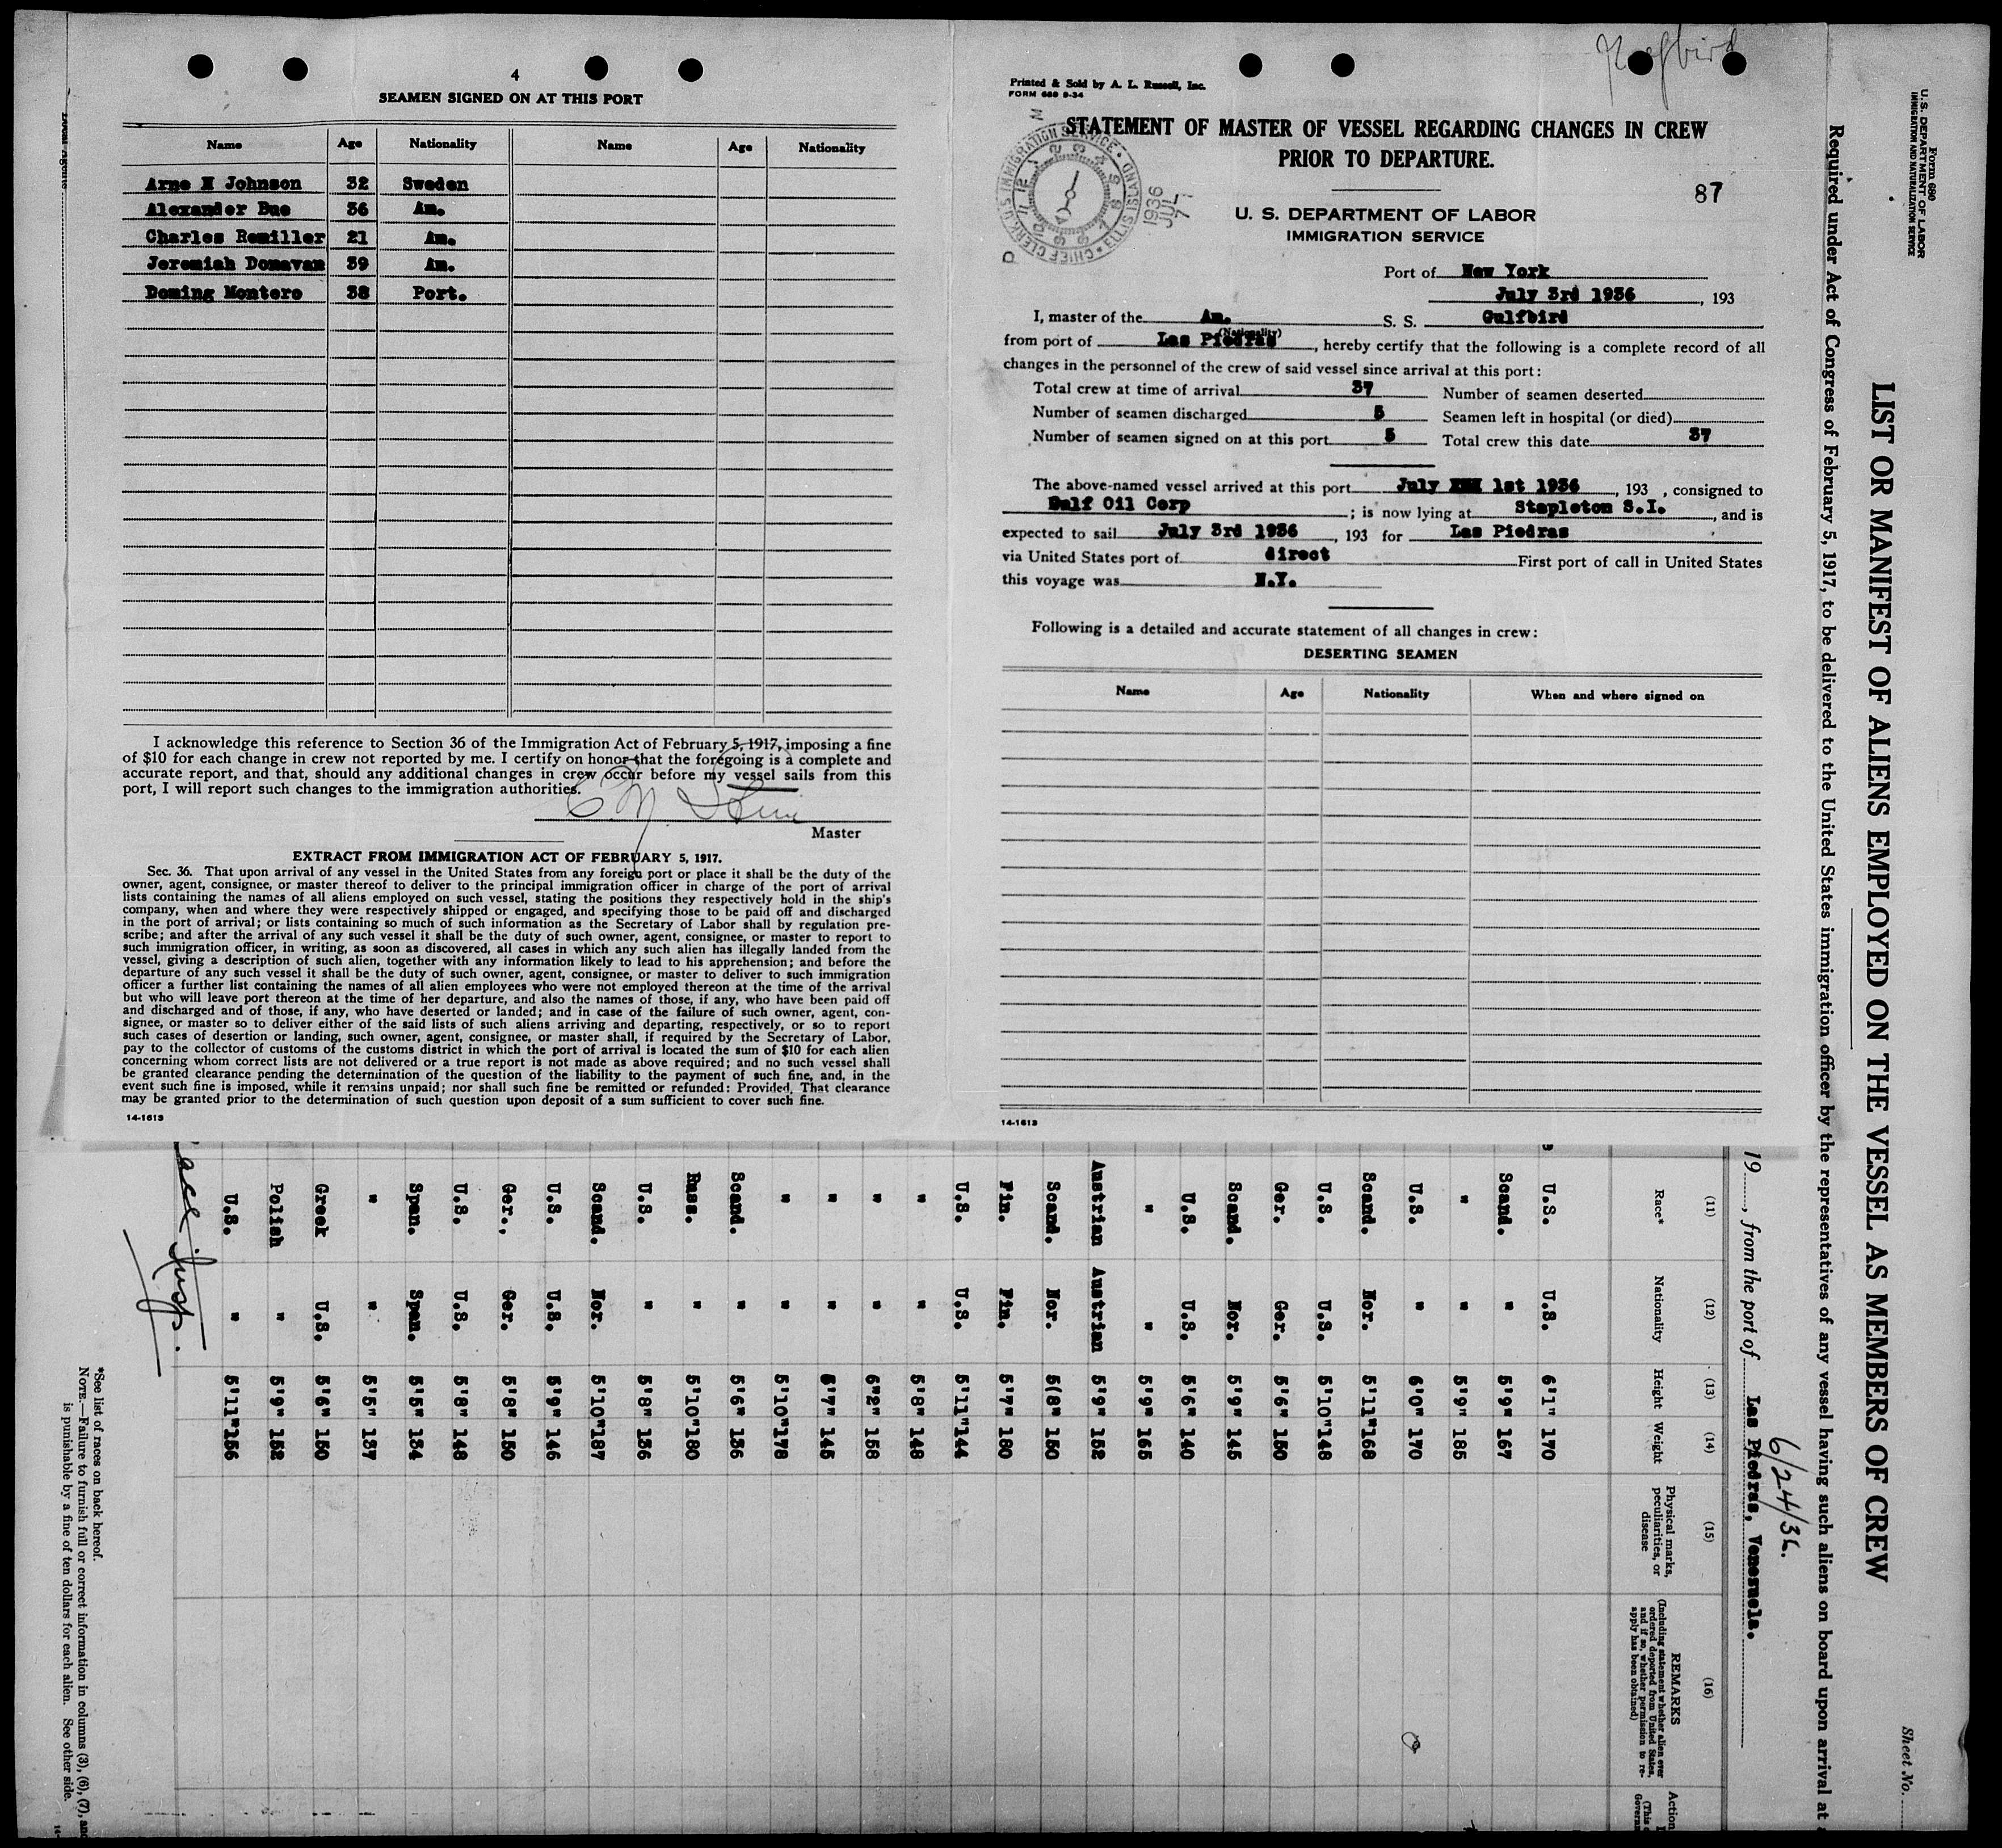 4
SEAMEN SIGNED ON AT THIS PORT
Name Age Nationality Name Age Nationality
Arne H Johnson 32 Sweden
Alexander Bue 36 Am.
Charles Remiller 21 Am.
Jeremiah Donavan 39 Am.
Doming Montero 38 Port.
I acknowledge this reference to Section 36 of the Immigration Act of February 5, 1917, imposing a fine
of $10 for each change in crew not reported by me. I certify on honor that the foregoing is a complete and
accurate report, and that, should any additional changes in crew occur before my vessel sails from this
port, I will report such changes to the immigration authorities.
Master
EXTRACT FROM IMMIGRATION ACT OF FEBRUARY 5, 1917.
Sec. 36. That upon arrival of any vessel in the United States from any foreign port or place it shall be the duty of the
owner, agent, consignee, or master thereof to deliver to the principal immigration officer in charge of the port of arrival
lists containing the names of all aliens employed on such vessel, stating the positions they respectively hold in the ship's
company, when and where they were respectively shipped or engaged, and specifying those to be paid off and discharged
in the port of arrival; or lists containing so much of such information as the Secretary of Labor shall by regulation pre-
scribe; and after the arrival of any such vessel it shall be the duty of such owner, agent, consignee, or master to report to
such immigration officer, in writing, as soon as discovered, all cases in which any such alien has illegally landed from the
vessel, giving a description of such alien, together with any information likely to lead to his apprehension; and before the
departure of any such vessel it shall be the duty of such owner, agent, consignee, or master to deliver to such immigration
officer a further list containing the names of all alien employees who were not employed thereon at the time of the arrival
but who will leave port thereon at the time of her departure, and also the names of those, if any, who have been paid off
and discharged and of those, if any, who have deserted or landed; and in case of the failure of such owner, agent, con-
signee, or master so to deliver either of the said lists of such aliens arriving and departing, respectively, or so to report
such cases of desertion or landing, such owner, agent, consignee, or master shall, if required by the Secretary of Labor,
pay to the collector of customs of the customs district in which the port of arrival is located the sum of $10 for each alien
concerning whom correct lists are not delivered or a true report is not made as above required; and no such vessel shall
be granted clearance pending the determination of the question of the liability to the payment of such fine, and, in the
event such fine is imposed, while it remains unpaid; nor shall such fine be remitted or refunded: Provided, That clearance
may be granted prior to the determination of such question upon deposit of a sum sufficient to cover such fine.
14-1613
Printed & Sold by A. L. Russell, Inc.
FORM 689 9-34
STATEMENT OF MASTER OF VESSEL REGARDING CHANGES IN CREW
PRIOR TO DEPARTURE.
CHIEF CLERK U.S. IMMIGRATION SERVICE · ELLIS ISLAND
1936 JUL 7
87
U. S. DEPARTMENT OF LABOR
IMMIGRATION SERVICE
Port of New York
July 3rd 1936, 193
I, master of the Am. S. S. Gulfbird
(Nationality)
from port of Las Piedras, hereby certify that the following is a complete record of all
changes in the personnel of the crew of said vessel since arrival at this port:
Total crew at time of arrival 37 Number of seamen deserted
Number of seamen discharged 5 Seamen left in hospital (or died)
Number of seamen signed on at this port 5 Total crew this date 37
The above-named vessel arrived at this port July XXX 1st 1936, 193 , consigned to
Gulf Oil Corp; is now lying at Stapleton S.I., and is
expected to sail July 3rd 1936, 193 for Las Piedras
via United States port of direct First port of call in United States
this voyage was N.Y.
Following is a detailed and accurate statement of all changes in crew:
DESERTING SEAMEN
Name Age Nationality When and where signed on
14-1613
Form 680
U. S. DEPARTMENT OF LABOR
IMMIGRATION AND NATURALIZATION SERVICE
Sheet No.
LIST OR MANIFEST OF ALIENS EMPLOYED ON THE VESSEL AS MEMBERS OF CREW
Required under Act of Congress of February 5, 1917, to be delivered to the United States immigration officer by the representatives of any vessel having such aliens on board upon arrival at
6/24/36.
19 , from the port of Las Piedras, Venezuela.
(11) (12) (13) (14) (15) (16)
Race* Nationality Height Weight Physical marks, peculiarities, or disease REMARKS (Including statement whether alien ever ordered deported from United States, and if so, whether permission to re-apply has been obtained) Action
U.S. U.S. 6'1" 170
Scand. " 5'9" 167
" " 5'9" 185
U.S. " 6'0" 170
Scand. Nor. 5'11" 168
U.S. U.S. 5'10" 148
Ger. Ger. 5'6" 150
Scand. Nor. 5'9" 145
U.S. U.S. 5'6" 140
" " 5'9" 165
Austrian Austrian 5'9" 152
Scand. Nor. 5(8" 150
Fin. Fin. 5'7" 180
U.S. U.S. 5'11" 144
" " 5'8" 148
" " 6"2" 158
" " 5'7" 145
" " 5'10" 178
Scand. " 5'6" 136
Russ. " 5'10" 180
U.S. " 5'8" 136
Scand. Nor. 5'10" 187
U.S. U.S. 5'9" 146
Ger., Ger. 5'8" 150
U.S. U.S. 5'8" 148
Span. Span. 5'5" 134
" " 5'5" 137
Greek U.S. 5'6" 150
Polish " 5'9" 152
U.S. " 5'11" 156
*See list of races on back hereof.
NOTE.—Failure to furnish full or correct information in columns (3), (6), (7), and
is punishable by a fine of ten dollars for each alien. See other side.